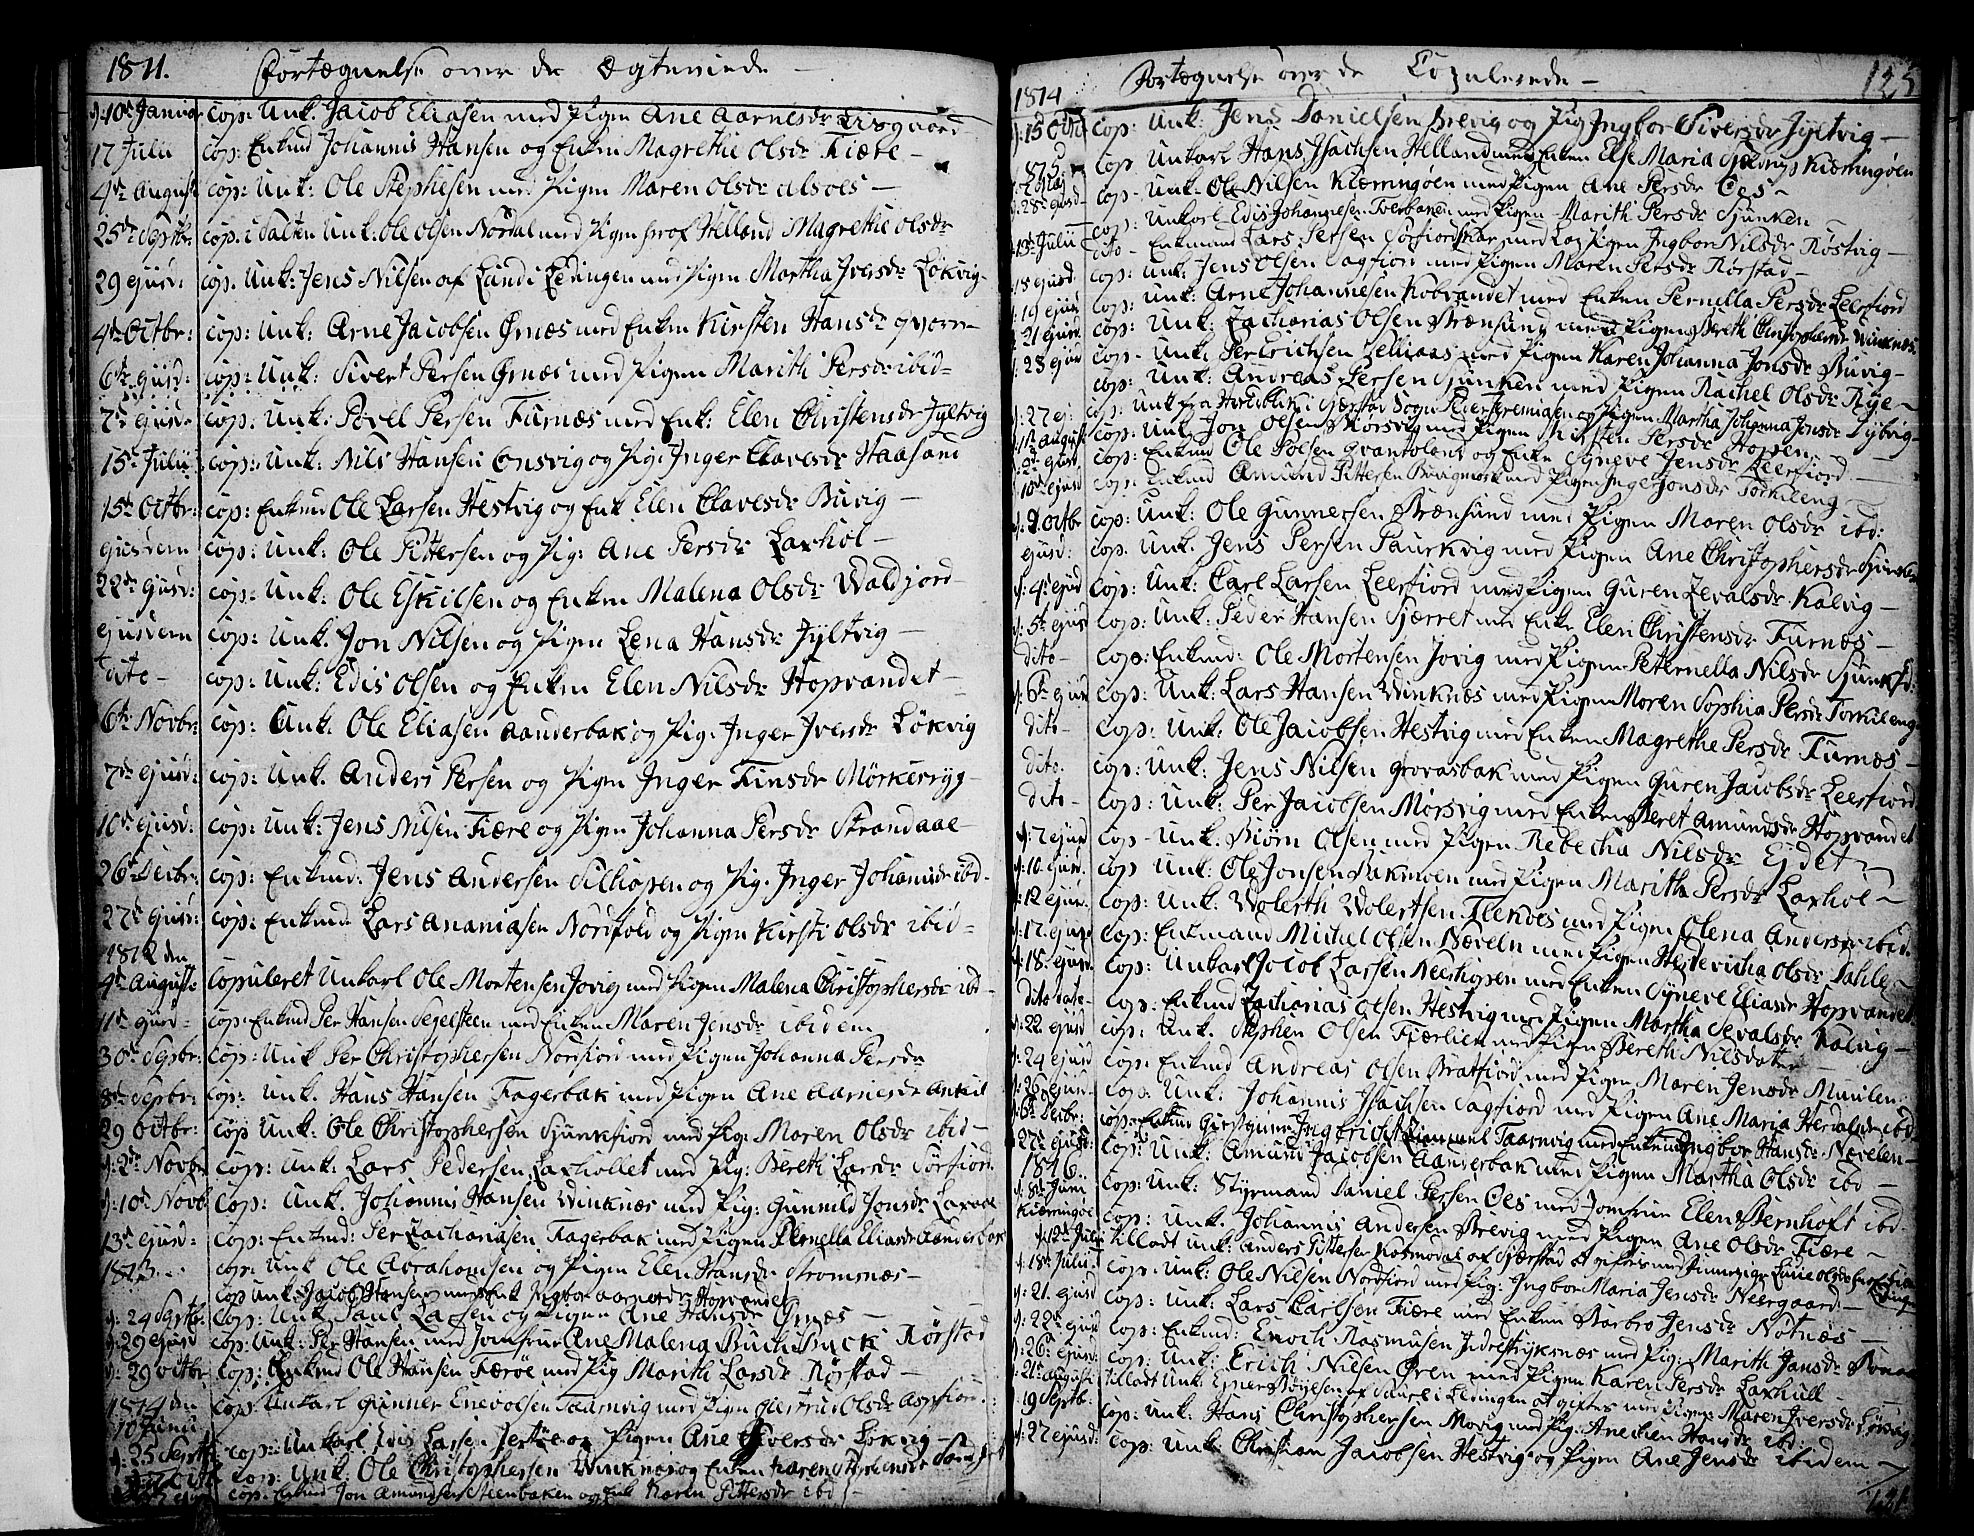 1811. Fortegnelse over de Egteviede
d: 10de Januar cop: Unk. Jacob Eliasen med Pigen Ane Aarnesdr
17 Julii cop: Enkmd Johannis Hansen og Enken Magrethe Olsdr Fiære
4de August cop: Unk: Ole Stephesen med Pigen Maren Olsdr
25de Septbr: cop: i Salten Unk: Ole Olsen Nordal med Pigen fra Helland Magrethe Olsdr
29 ejusd: cop: Unk: Jens Nilsen af Lund i Lødingen med Pigen Martha Iversdr Løkvig
4de Octbr: cop: Unk: Arne Jacobsen Ørnæs med Enken Kirsten Hansdr
6te ejusd: cop: Unk: Sivert Persen Ørnæs med Pigen Marith Persdr ibid
7de ejusd: cop: Unk: Povel Persen Furnæs med Enk: Elen Christensdr Jyltvig
15de Julii cop: Unk: Nils Hansen Onsvig og Pig: Inger Clavesdr Haasand
15de Octbr: cop: Enkmd Ole Larsen Hestvig og Enk Elen Clavesdr Buvig
ejusdem cop: Unk: Ole Pittersen og Pig: Ane Persdr Laxhol
22de ejusd: cop: Unk: Ole Eskilsen og Enken Malena Olsdr Waldjord
ejusdem cop: Unk: Jon Nilsen og Pigen Lena Hansdr Jyltvig
dito cop: Unk: Edis Olsen og Enken Elen Nilsdr Hopvandet
6te Novbr: cop: Unk: Ole Eliasen Aanderbak og Pig: Inger Iversdr Løkvig
7de ejusd: cop: Unk. Anders Persen og Pigen Inger Finsdr Mörkerryg
10de ejusd: cop: Unk: Jens Nilsen Fiære og Pigen Johanna Persdr Strandaae
26de Decbr: cop: Enkmd: Jens Andersen Silhopen og Pig: Inger Johannisdr ibd.
27de ejusd: cop: Enkmd: Lars Ananiasen Nordfold og Pigen Kirsti Olsdr ibid
1812 den
4de Auguste Copuleret Unkarl Ole Mortensen Jovig med Pigen Malena Christophersdr ibd
11de ejusd cop: Enkmd Per Hansen Segelsteen med Enken Maren Jensdr ibidem
30de Sepbr: cop: Unk Per Christophersen Norfiord med Pigen Johanna Persdr
8de Sepbr: cop: Unk. Hans Hansen Fagerbak med Pigen Ane Aarnesdr
29 Octbr: cop Unk: Ole Christophersen Sjunkfiord med Pig: Maren Olsdr ibid
d: 2de Novbr cop: Unk: Lars Pedersen Laxhollet med Pig: Bereth Larsdr Sørfiord
d: 10de Novb cop: Unk. Johannis Hansen Winknæs med Pig: Gunnild Jonsdr
13de ejusd: cop: Enkmd: Per Zachariasen Fagerbak med Pigen Pernella Eliasdr
1813 cop: Unk Ole Abrahamsen og Pigen Elen Hansdr Strømnæs
cop Unk: Jacob Hansen med Enk Ingbor Aarnesdr Hopvandet
d: 24 Septbr: Cop: Unk Paul Larsen og Pigen Ane Hansdr Ørnæs
d: 29 ejusd cop: Unk: Per Hansen med Jomfrue Ane Malena Buch Rørstad
d: 29 Octbr cop: Enkmd Ole Hansen Færøe med Pig Marith Larsdr Rørstad
1814 den
10 Junii cop: Unkarl Gunner Enevolsen Taarnvig med Pigen Giertrud Olsdr
d: 25 Septbr cop: Unkarl Edis Larsen og Pigen Ane Siversdr Løkvig
cop: Unk: Ole Christophersen Winknæs og Enken Karen
cop: Enkmd Jon Amundsen Steenbakken og Enk Karen Pittersdr ibd
1814 Fortegnelse over de Copulerede 125
d: 15 Octb cop: Unk: Jens Danielsen Brevig og Pig Ingbor Siversdr Jyltvig
1815 cop Unkarl Hans Isachsen Helland med Enken Else Maria Kierringøen
d: 28 ejusd cop: Unk Ole Nilsen Kierringøen med Pigen Ane Persdr Oes
cop: Unkarl Edis Johannesen med Pigen Marith Persdr Sjunken
d: 13de Julii dito Enkmand Lars Persen med Pigen Ingbor Nilsdr Röstvig
cop: Unk: Jens Olsen Sagfiord med Pigen Maren Persdr Rörstad
15 ejusd: cop: Unk: Arne Johannesen Kobvandet med Enken Pernella Persdr Leerfiord
d: 19 ejusd cop: Unk: Zacharias Olsen Brænsund med Pigen Bereth Christophersdr Winknæs
21 ejusd cop Unk: Per Erichsen med Pigen Karen Johanna Jonsdr Buvig
d: 23 ejusd cop: Unk: Andreas Persen Sjunken med Pigen Rachel Olsdr Rye
d: 27 ej: cop: Unk fra i Sogn Peder Jeremiasen og Pigen Martha Johanna Jonsdr Dybvig
cop: Unk Jon Olsen Morsvig med Pigen Kirsten Persdr Hopen
cop: Enkmd Ole Polsen og Enke Syneve Jensdr Leerfiord
10de ejusd cop: Enkmd Amund Pittersen med Pigen Inger Jonsdr Torkileng
d: 2 Octbr cop: Unk: Ole Gunnersen Brænsund med Pigen Maren Olsdr ibd:
ejusd: cop. Unk. Jens Persen med Pigen Ane Christophersdr
d: 4de ejusd cop: Unk: Carl Larsen Leerfiord med Pigen Guren Zevalsdr Kalvig
d: 5te ejusd cop: Unk: Peder Hansen med Enke Elen Christensdr Furnæs
dito cop: Enkmd: Ole Mortensen Jovig med Pigen Peternella Nilsdr
d: 6te ejusd cop: Unk: Lars Hansen Winknæs med Pigen Maren Sophia Persdr Torkileng
dito cop: Unk: Ole Jacobsen Hestvig med Enken Magrethe Persdr Furnæs
dito. cop: Unk: Jens Nilsen Grovasbak med Pigen Guren Jacobsdr Leerfiord
dito cop: Unk: Per Jacobsen Morsvig med Enken Beret Amundsdr Hopvandet
d: 7 ejusd cop Unk. Biørn Olsen med Pigen Rebecha Nilsdr Ejdet
d: 10. ejusd. cop Unk: Ole Jonsen Bakmoen med Pigen Maritha Persdr Laxhol
d: 12 ejusd. cop: Unk: Wolerth Wolertsen med Pigen Olena Andersdr ibid.
d: 17. ejusd cop: Enkmand Michel Olsen Næveln med Pigen Hedevicha Olsdr Dahle
d: 18. ejusd cop: Unkarl Jacob Larsen Neeshopen med Enken Syneve Eliasdr Hopvandet
dito dato cop: Enkmd Zacharias Olsen Hestvig med Pigen Martha Sevalsdr Kalvig
d: 22. ejusd cop: Unk. Stephen Olsen Fiærlien med Pigen Bereth Nilsdater
d: 24 ejusd cop: Enkmd Andreas Olsen Bratfiord med Pigen Maren Jensdr
d: 26. ejusd cop: Unk: Johannis Isachsen Sagfiord med Pigen Ane Maria ibd
d: 6te Decbr: cop: Taarnvig med Enken Ingbor Hansdr Nevelen
27de ejusd: cop: Unk: Amund Jacobsen Aanderbak med Pigen Martha Olsdr ibd
1816.
d: 8de Junii cop: Unk: Styrmand Daniel Persen Oes med Jomfrue Elen Bernhoft ibd.
Kierringøe cop: Unk. Johannis Andersen Brevig med Pigen Ane Olsdr Fiære
d: 12te Julii tilladt Unk: Anders Pittersen af at giftes med
d: 18de Julii: cop: Unk: Ole Nilsen Nordfiord med Pig: Ingbor Maria Jensdr Neergaard
d: 21. ejusd cop: Unk: Lars Carlsen Fiære med Enken Barbro Jensdr Nötnæs
d: 22de ejusd cop: Enkmd: Enoch Rasmusen med Pig: Marith Jansdr
d: 26: ejusd: cop: Unk: Erich Nilsen Øren med Pigen Karen Persdr Laxhull
21de augusti tilladt Unk: i Lødingen at giftes med Pigen Maren Iversdr Løkvig
19 Septb: cop: Unk: Hans Christophersen Movig med Pig: Hansdr ibd:
d: 27 ejusd: cop: Unk: Christian Jacobsen Hestvig og Pigen Ane Jensdr ibidem